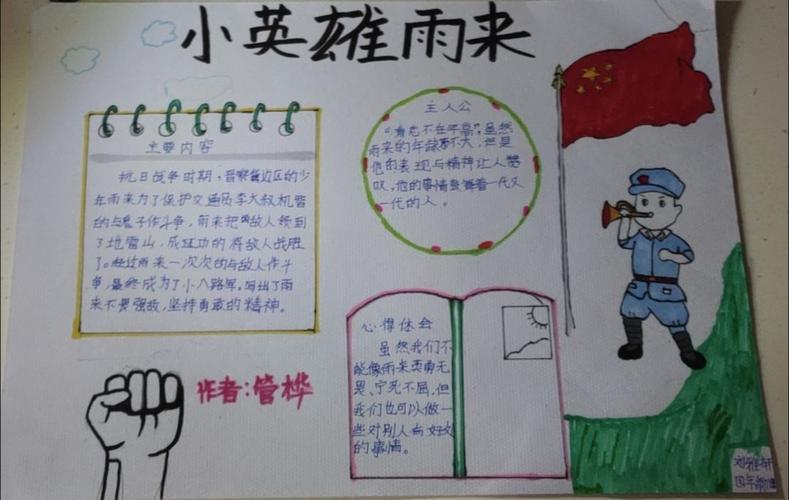 小英雄雨来
主要内容
抗日战争时期，晋察冀边区的少
年雨来为了保护交通员李大叔机智
的与鬼子作斗争，雨来把敌人领到
了地雷山，成功的将敌人战胜
了。经过雨来一次次的与敌人作斗
争，最终成为了小八路军。写出了雨
来不畏强敌，坚持勇敢的精神。
主人公
"有志不在年高"，虽然
雨来的年龄不大，但是
他的表现与精神让人赞
叹，他的事情鼓舞着一代又
一代的人。
作者：管桦
心得体会
虽然我们不
能像雨来英勇无
畏、宁死不屈，但
我们也可以做一
些对别人有好处
的事情。
刘雅轩